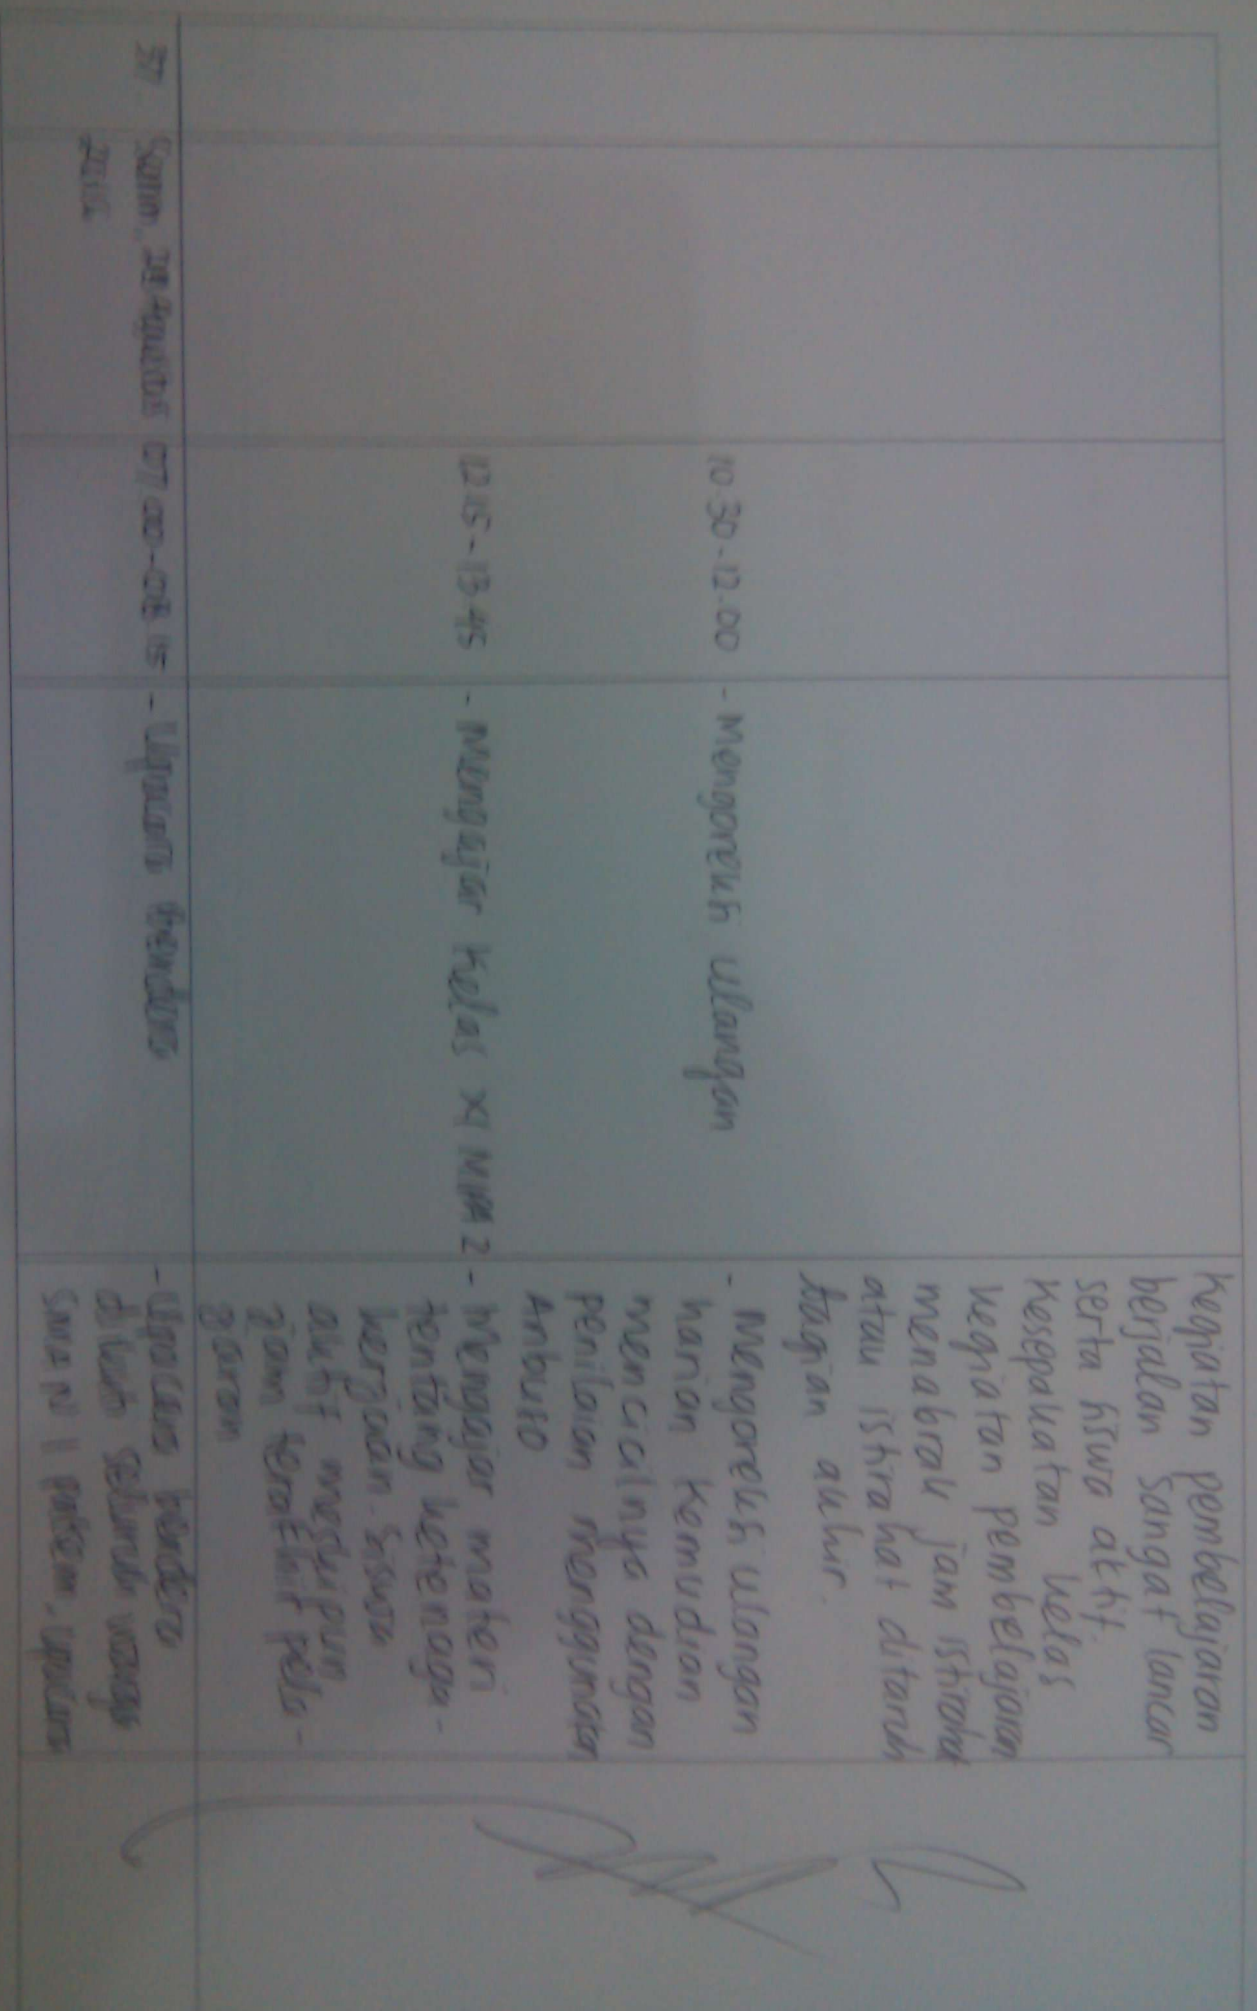 Kegiatan pembelajaran
berjalan sangat lancar
serta siswa aktif.
Kesepakatan kelas
kegiatan pembelajaran
menabrak jam istirahat
atau istirahat ditaruh
bagian akhir.
10.30-12.00 - Mengoreksi ulangan - Mengoreksi ulangan
harian kemudian
mencicilnya dengan
penilaian menggunakan
Anbuso
12.15-13.45 - Mengajar Kelas XI MIPA 2 - Mengajar materi
tentang ketenaga-
kerjaan. Siswa
aktif meskipun
jam terakhir pela-
jaran
37 Senin, Agustus 07.00-08.15 - Upacara Bendera - Upacara bendera
diikuti seluruh warga
SMAN 11 Upacara